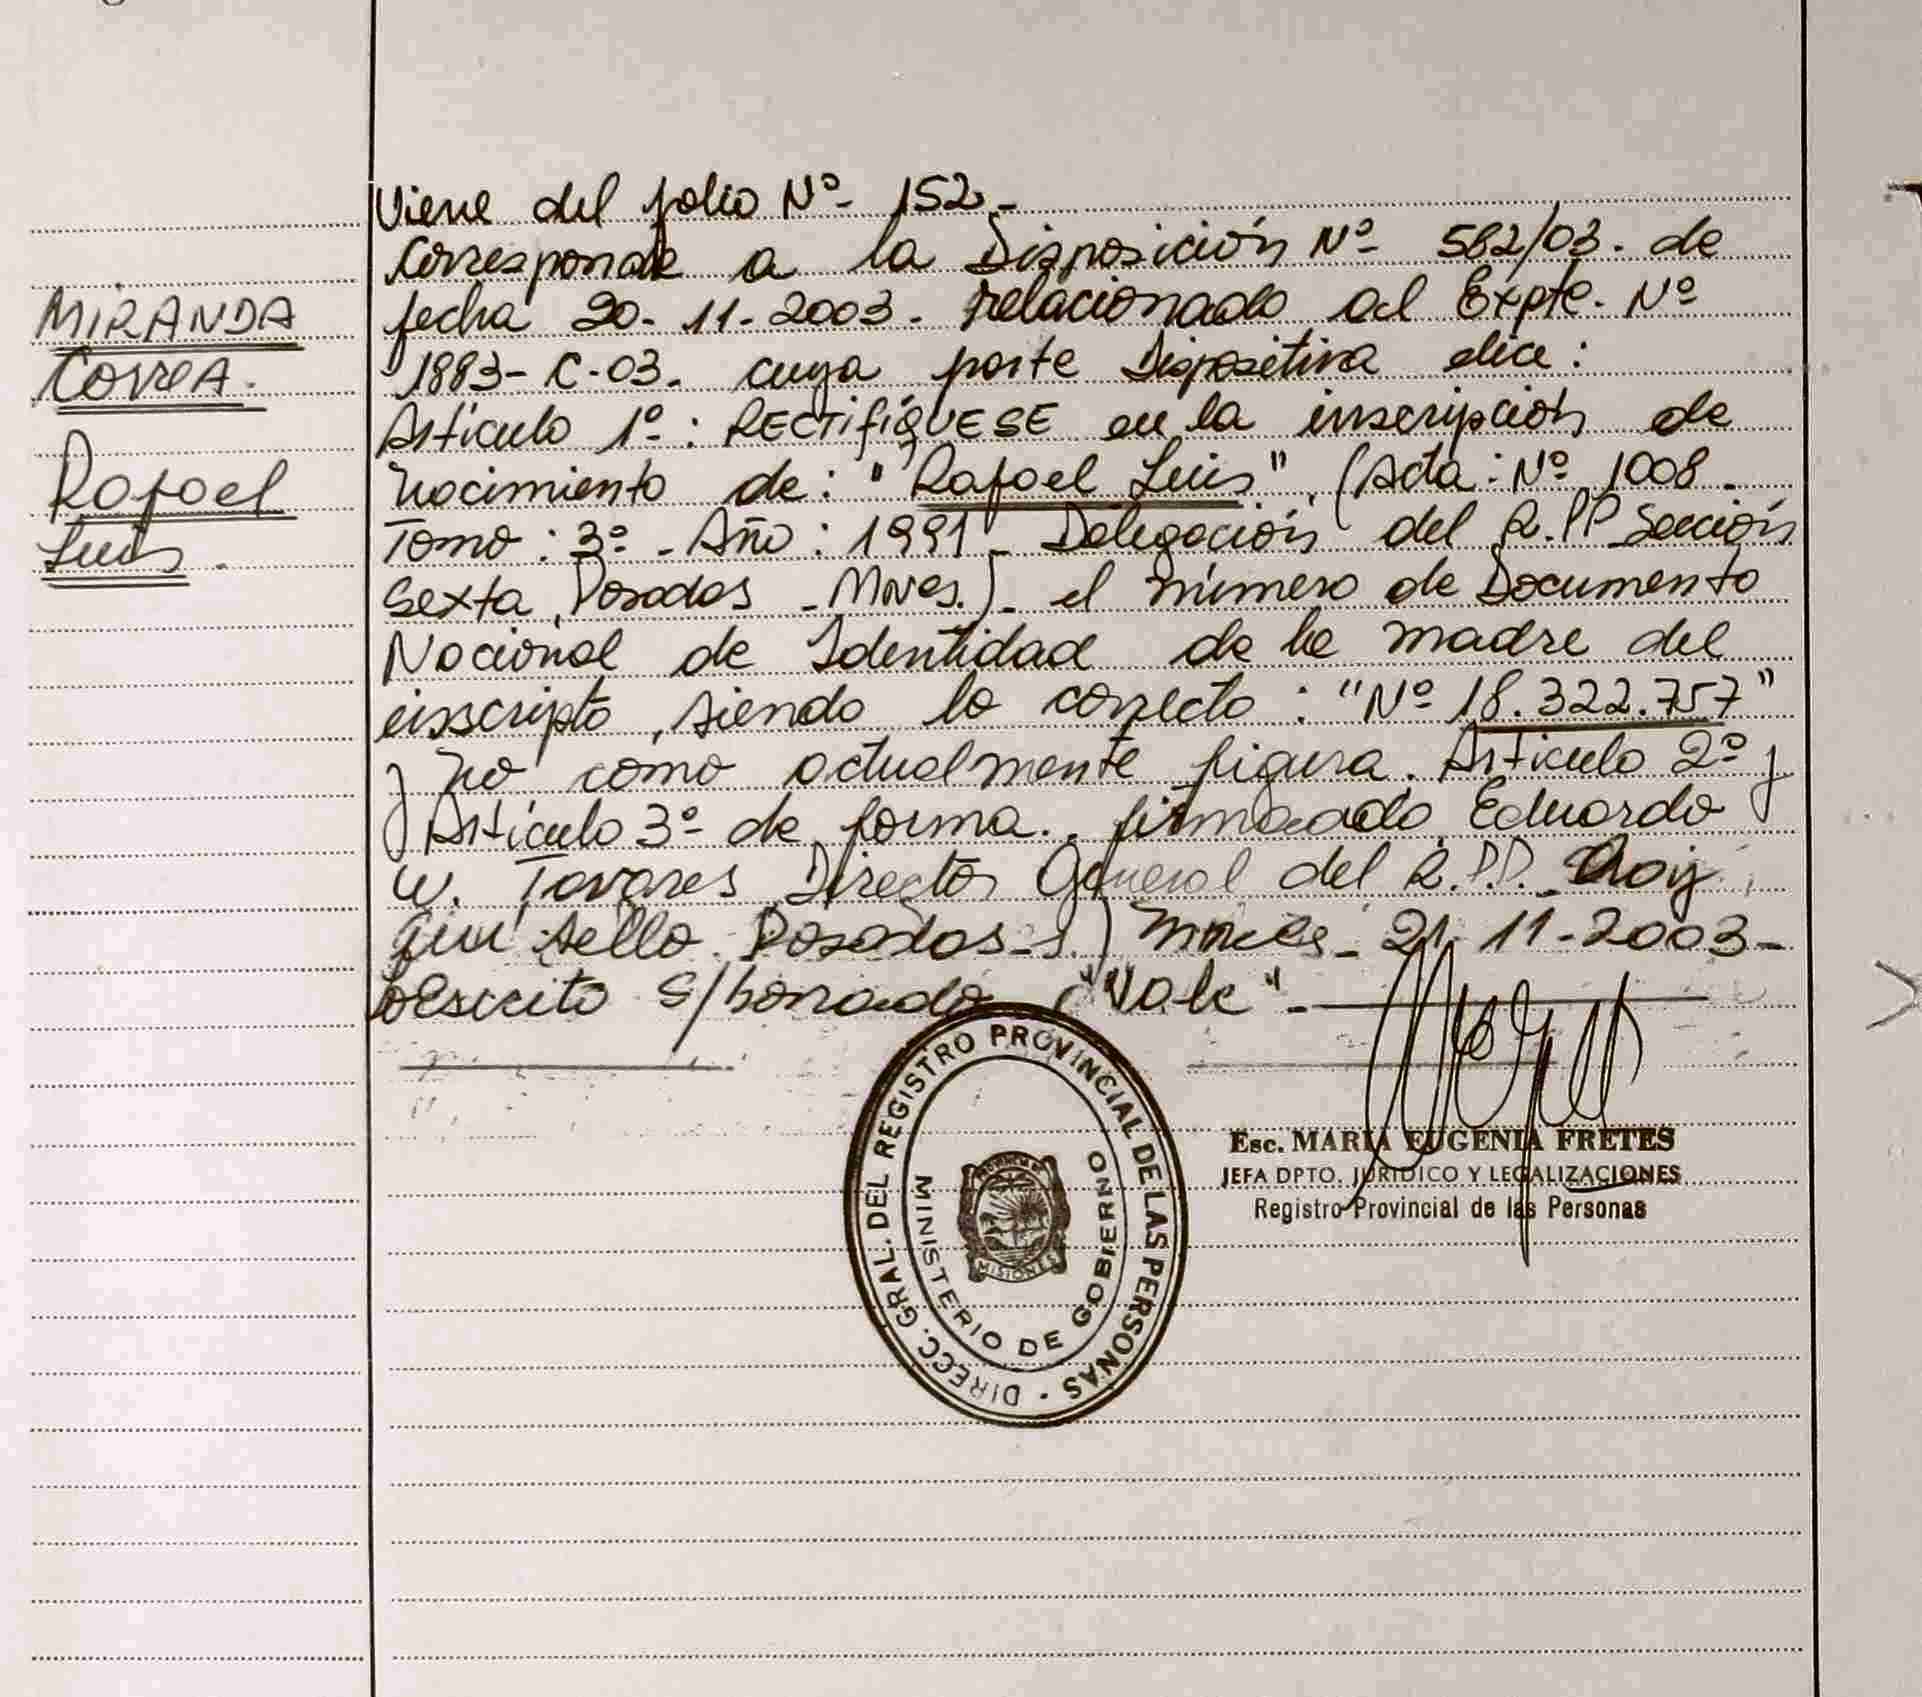 MIRANDA
Correa.
Rafael
Luis.
Viene del folio Nº 152.-
Corresponde a la Disposición Nº 582/03. de
fecha 20-11-2003. relacionado al Expte. Nº
1883-C-03. cuya parte Dispositiva dice:
Artículo 1º: RECTIFÍQUESE en la inscripción de
nacimiento de: "Rafael Luis", (Acta: Nº 1008-
Tomo: 3º- Año: 1991- Delegación del R.PP Sección
Sexta, Posadas - Mnes.)- el número de Documento
Nacional de Identidad de la madre del
inscripto, siendo lo correcto: "Nº 18.322.757"
y no como actualmente figura. Artículo 2º y
Artículo 3º de forma. firmado Eduardo
W. Tavares Director General del R.P.P. Hay
un sello. Posadas Mnes- 21-11-2003-
s/borrado "Vale"-
DIRECC. GRAL. DEL REGISTRO PROVINCIAL DE LAS PERSONAS -
MINISTERIO DE GOBIERNO
MISIONES
Esc. MARIA EUGENIA FRETES
JEFA DPTO. JURIDICO Y LEGALIZACIONES
Registro Provincial de las Personas